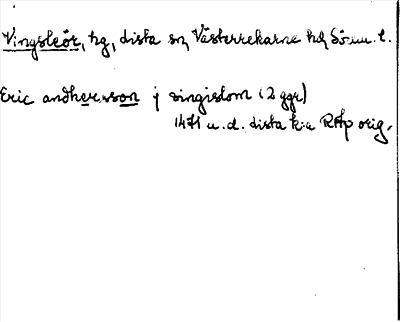 Vingsleör, hg, dista sn, Västerrekarne hd, Sörml. l.
Eric andhersson j singislom (2 ggr)
1471 u.d. dista k:a RAp orig.